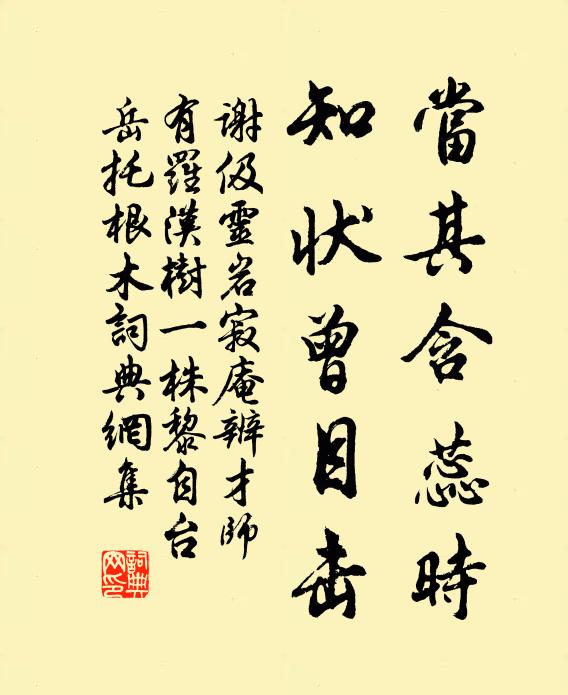 當其含蕊時
知狀曾目击
谢伋靈岩寂庵辨才師
有羅漢樹一株黎自台
岳托根木詞典網集
詞典网印